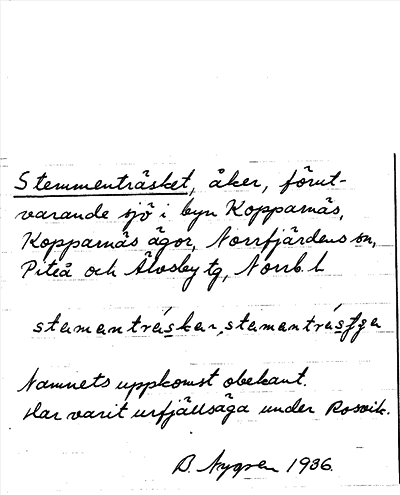 Stemmenträsket, åker, förut-
varande sjö i byn Kopparnäs,
Kopparnäs ägor, Norrfjärdens sn,
Piteå och Älvsby tg, Norrb. l
stementräskar, stamanträsfga
Namnets uppkomst obekant.
Har varit urfjällsäga under Rosvik.
B. Nygren 1936.